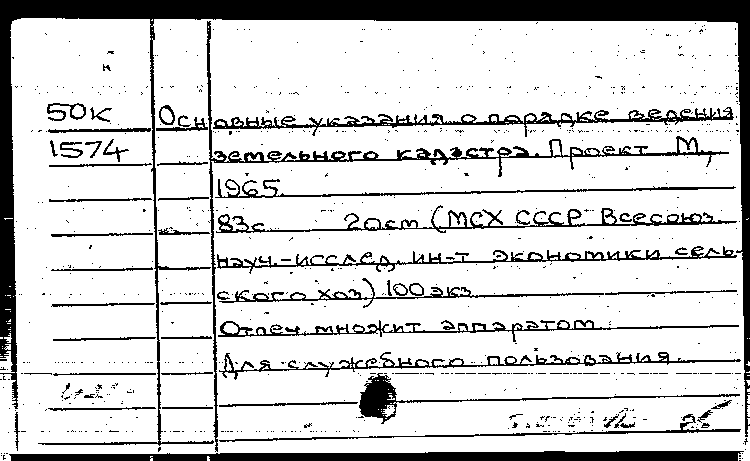 50к Основные указания о порядке ведения
1574 земельного кадастра. Проект М.,
1965.
83с 20см (МСХ СССР Всесоюз.
науч.-исслед. ин-т экономики сель-
ского хоз) 100 экз
Отпеч. множит. аппаратом.
Для служебного пользования.